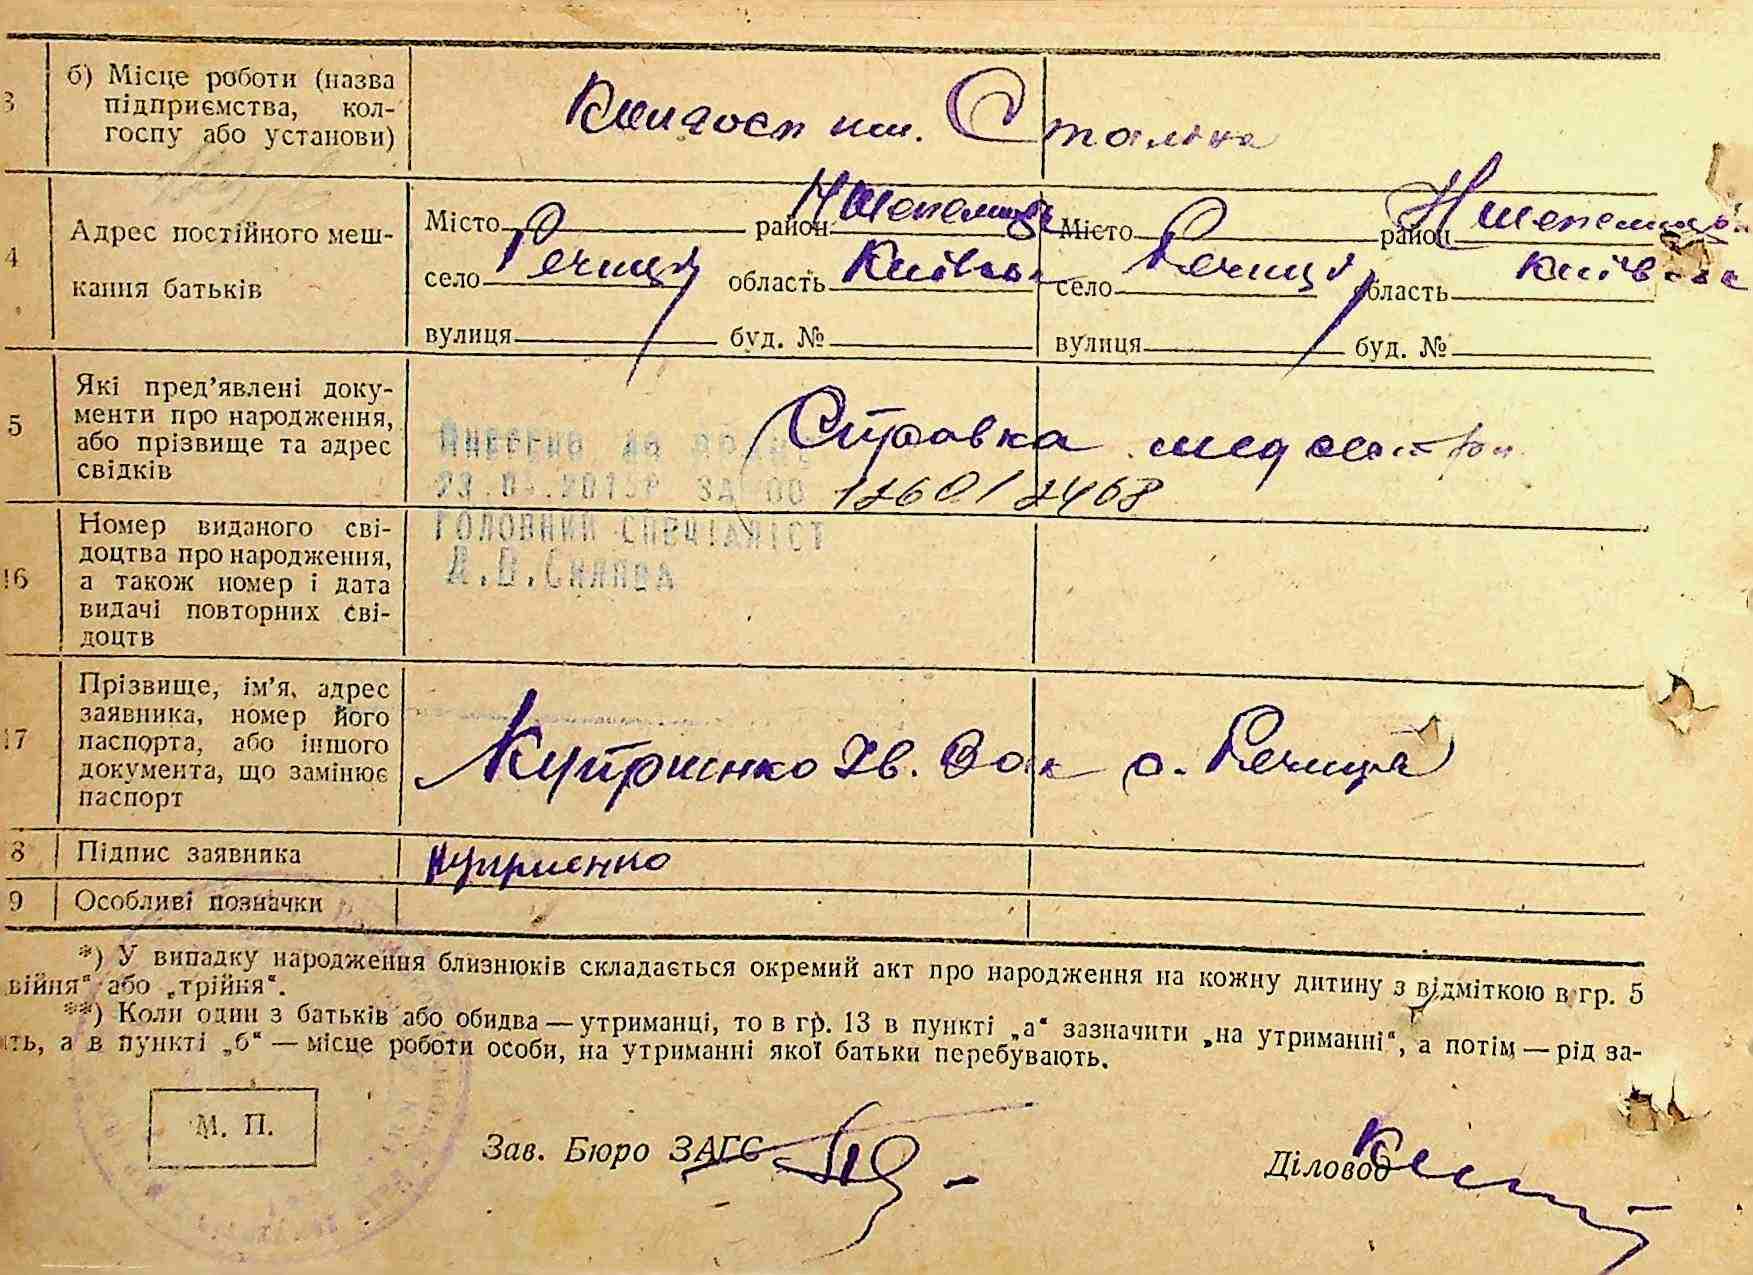 3
б) Місце роботи (назва
підприємства, кол-
госпу або установи)
Колгосп им. Сталіна
4
Адрес постійного меш-
кання батьків
Місто район Ншепелицьк
село Речиця область Київськ
вулиця буд. №
Місто район Ншепелицьк
село Речиця область Київськ
вулиця буд. №
5
Які пред'явлені доку-
менти про народження,
або прізвище та адрес
свідків
Справка медсестри
Внесено до
ЗА 00 126012468
ГОЛОВНИЙ СПЕЦІАЛІСТ
16
Номер виданого сві-
доцтва про народження,
а також номер і дата
видачі повторних сві-
доцтв
17
Прізвище, ім'я, адрес
заявника, номер його
паспорта, або іншого
документа, що замінює
паспорт
Куприенко с. Речиця
8
Підпис заявника
Куприенко
9
Особливі позначки
*) У випадку народження близнюків складається окремий акт про народження на кожну дитину з відміткою в гр. 5
війня" або „трійня".
**) Коли один з батьків або обидва — утриманці, то в гр. 13 в пункті „а" зазначити „на утриманні", а потім — рід за-
ть, а в пункті „б" — місце роботи особи, на утриманні якої батьки перебувають.
М. П.
Зав. Бюро ЗАГС
Діловод